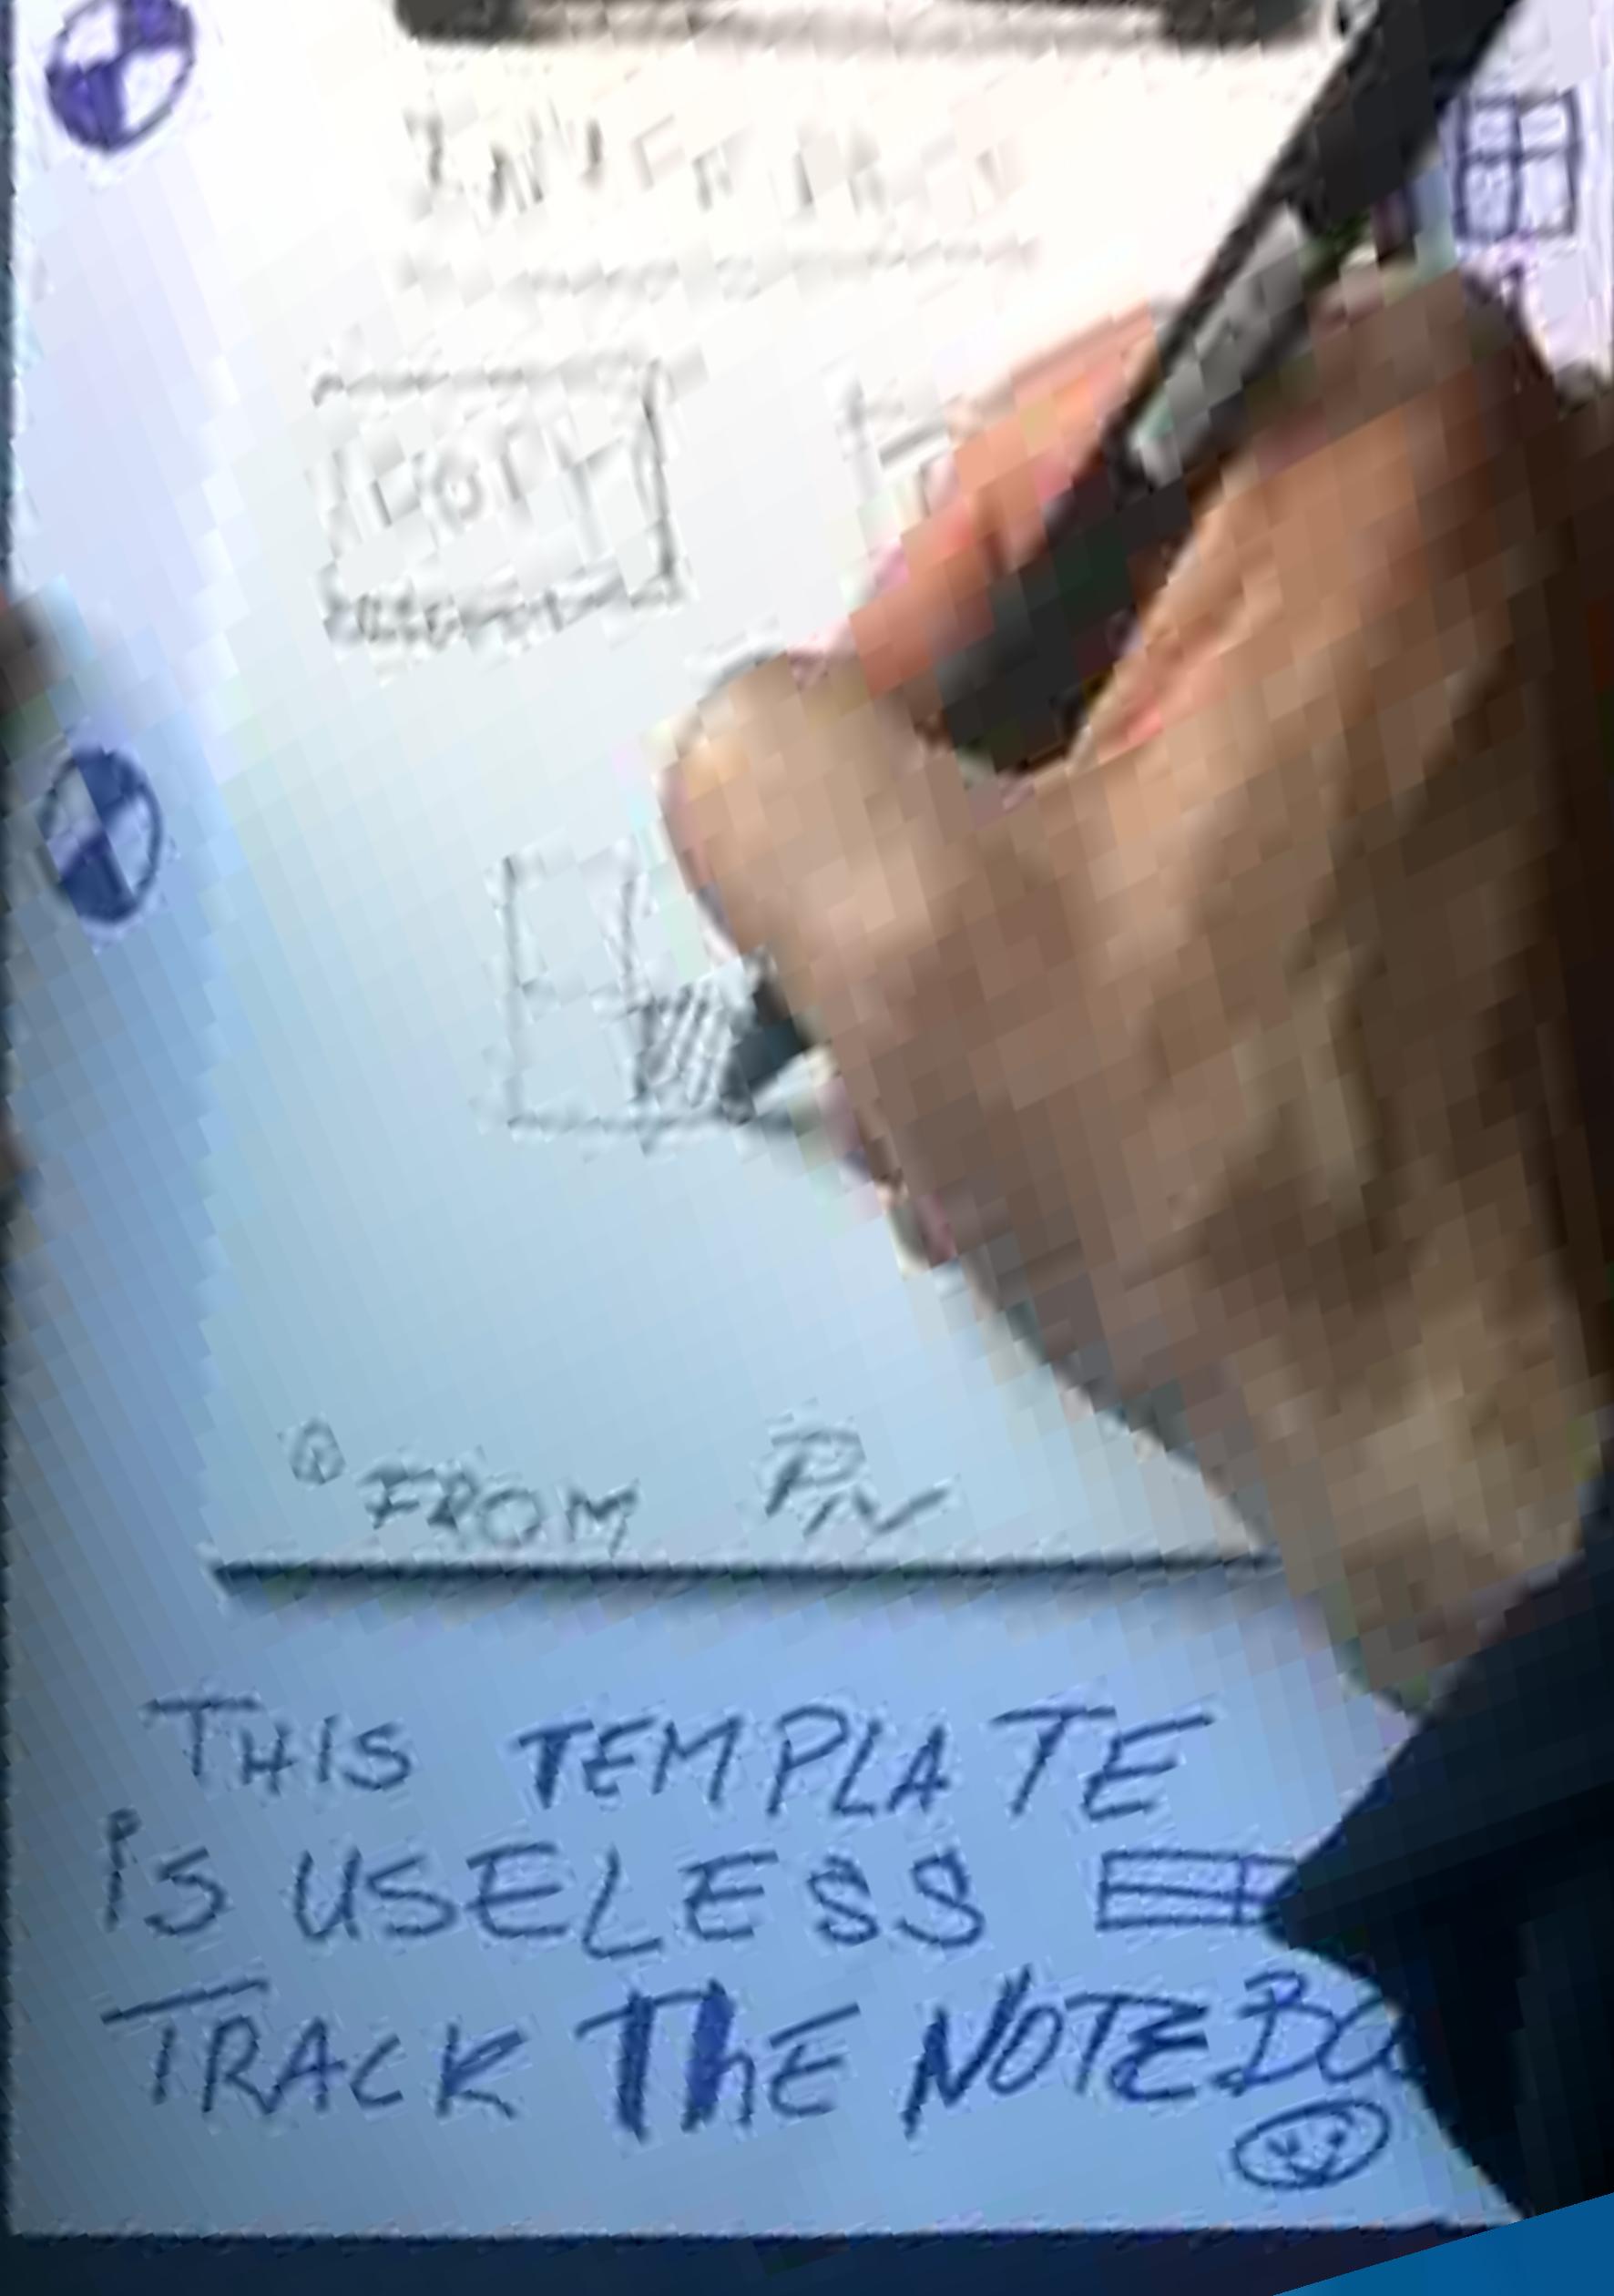 FROM PIN
THIS TEMPLATE
iS USELESS
TRACK ThE NOTEBO